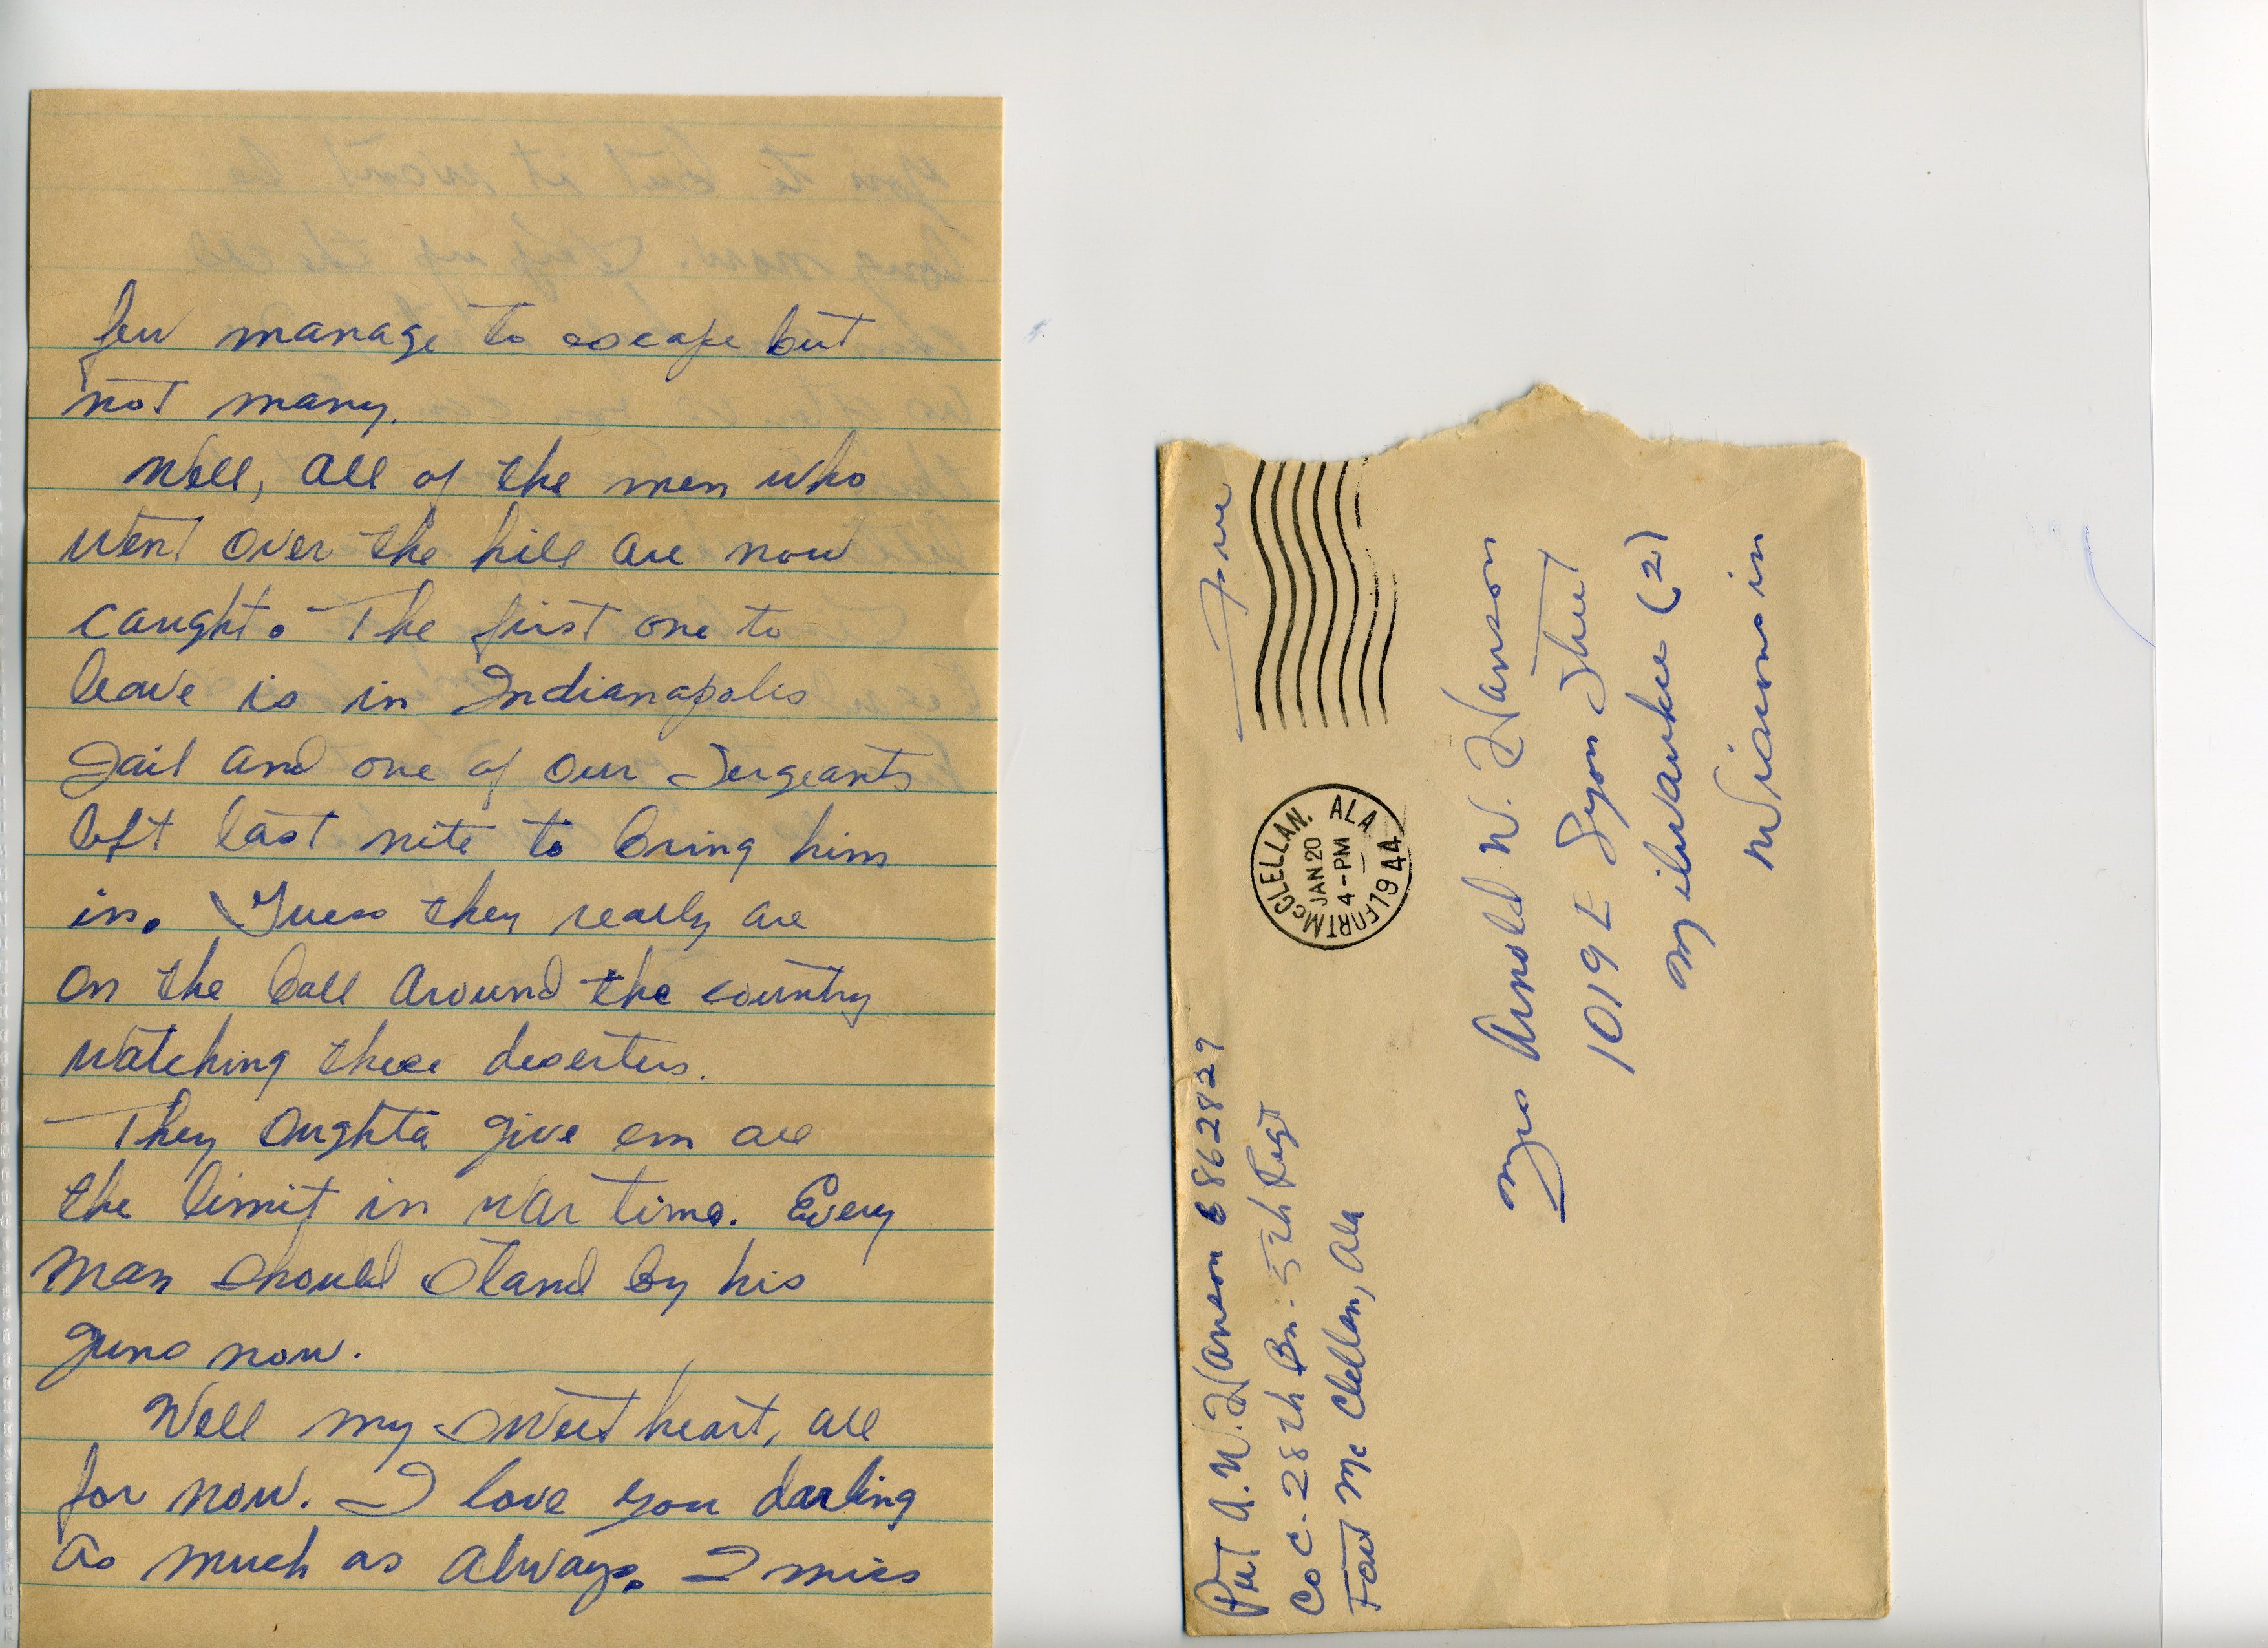 few manage to escape but
not many.
Well, all of the men who
went over the hill are now
caught. The first one to
leave is in Indianapolis
Jail and one of our Sergeants
left last nite to bring him
in. Guess they really are
on the ball around the country
watching these deserters.
They oughta give em all
the limit in war time. Every
man should stand by his
guns now.
Well my sweet heart, all
for now. I love you darling
as much as always. I miss
Pvt A.W. Hanson 36862829
Co C. - 28th Bn. - 5th Regt
Fort Mc Clellan, Ala
Free
FORT McCLELLAN, ALA.
JAN 20
4-PM
1944
Mrs Arnold W. Hanson
1019 E Lyon Street
Milwaukee (2)
Wisconsin